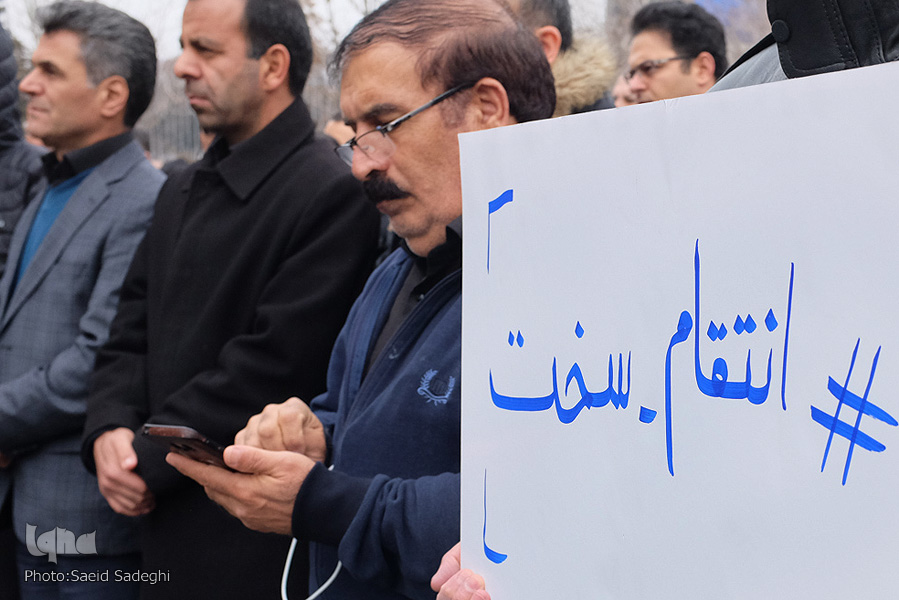 #انتقام.سخت
Iqna
Photo:Saeid Sadeghi